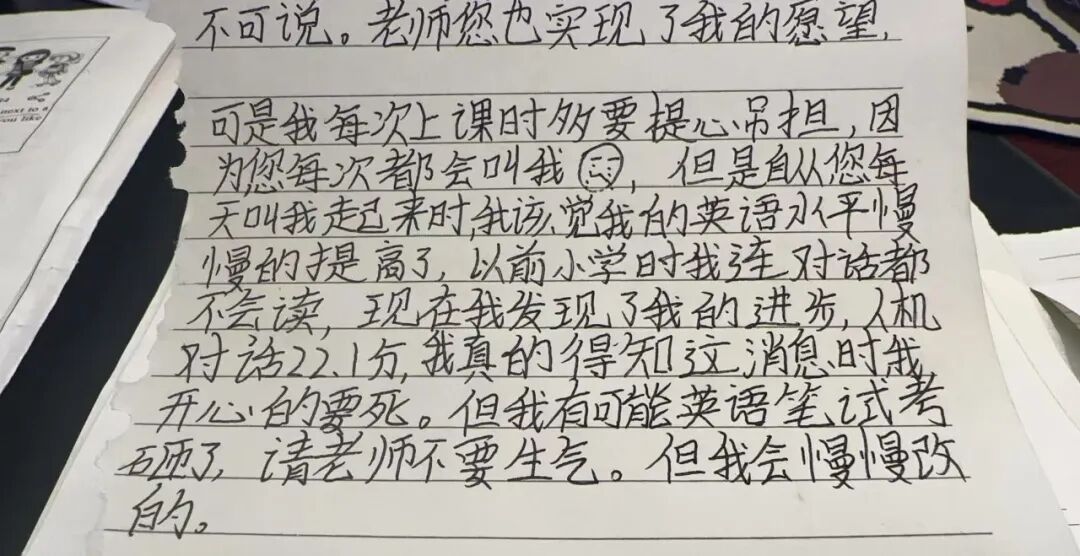 不可说。老师您也实现了我的愿望,
可是我每次上课时多要提心吊担,因
为您每次都会叫我,但是自从您每
天叫我起来时,我该觉我的英语水平慢
慢的提高了,以前小学时我连对话都
不会读,现在我发现了我的进步,人机
对话22.1分,我真的得知这消息时我,
开心的要死。但我有可能英语笔试考
砸了,请老师不要生气。但我会慢慢改
的。
next to a
you like